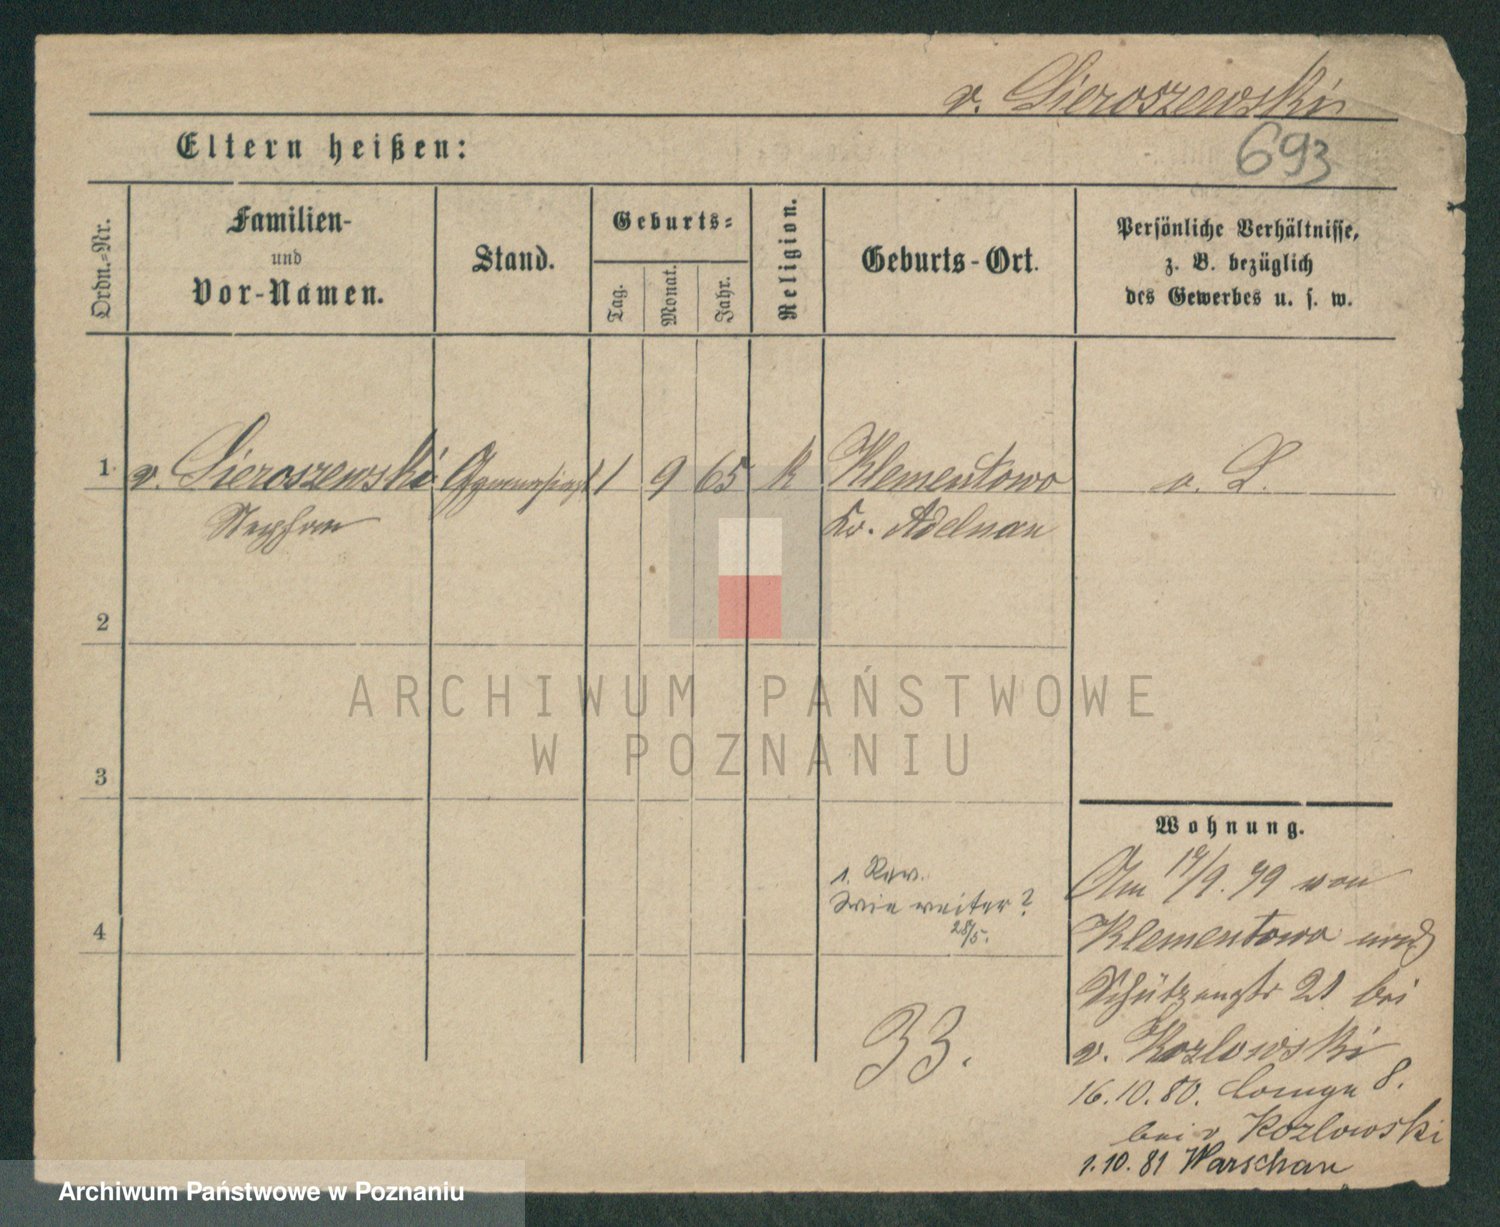 v. Sieroszewski
693
Eltern heißen:
Ordn.-Nr.
Familien-
und
Vor-Namen.
Stand.
Geburts-
Tag.
Monat.
Jahr.
Religion.
Geburts-Ort.
Persönliche Verhältnisse,
z. B. bezüglich
des Gewerbes u. s. w.
1 v. Sieroszewski Gymnasiast 1 9 65 k Klementowo
Stephan Kr. Adelnau
2
3
4
ARCHIWUM PAŃSTWOWE
W POZNANIU
Wohnung.
1. Rev.
Wie weiter?
28/5.
33.
Am 17/9. 79 von
Klementowo nach
Schützenstr 21 bei
v. Kozlowski
16.10.80. Lange 8.
bei v Kozlowski
1.10.81 Warschau
Archiwum Państwowe w Poznaniu